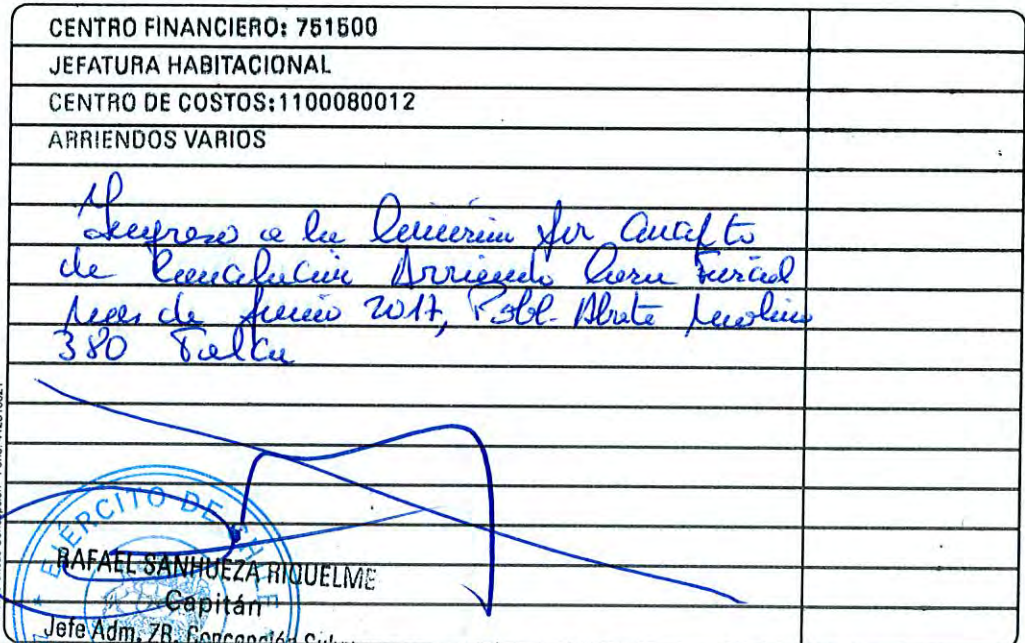 CENTRO FINANCIERO: 751500
JEFATURA HABITACIONAL
CENTRO DE COSTOS:1100080012
ARRIENDOS VARIOS
Ingreso a la
de Arriendo Casa Fiscal
mes de Junio 2017, Pobl. Abate Molina
380 Talca
EJÉRCITO DE
RAFAEL SANHUEZA RIQUELME
Capitán
Jefe Adm. ZR. Concepción